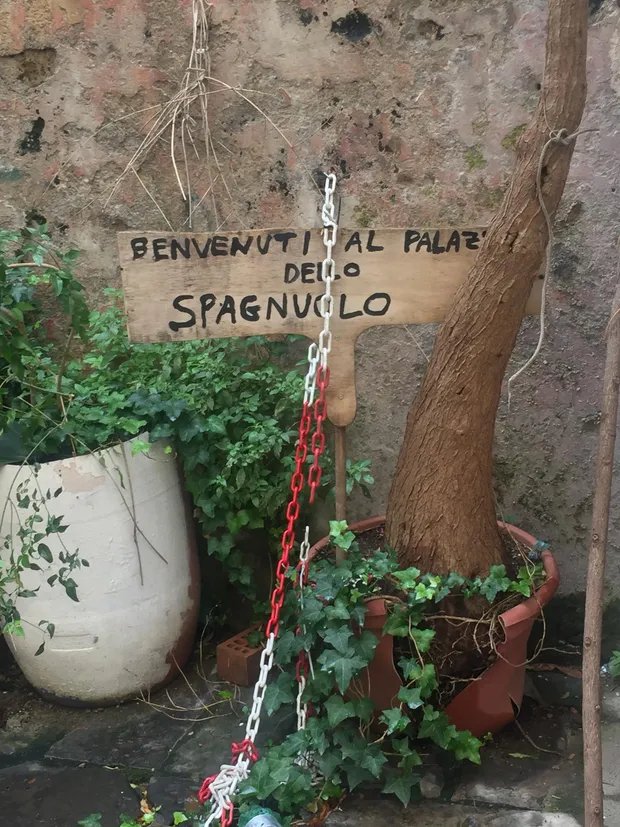 BENVENUTI AL PALAZ
DELLO
SPAGNUOLO